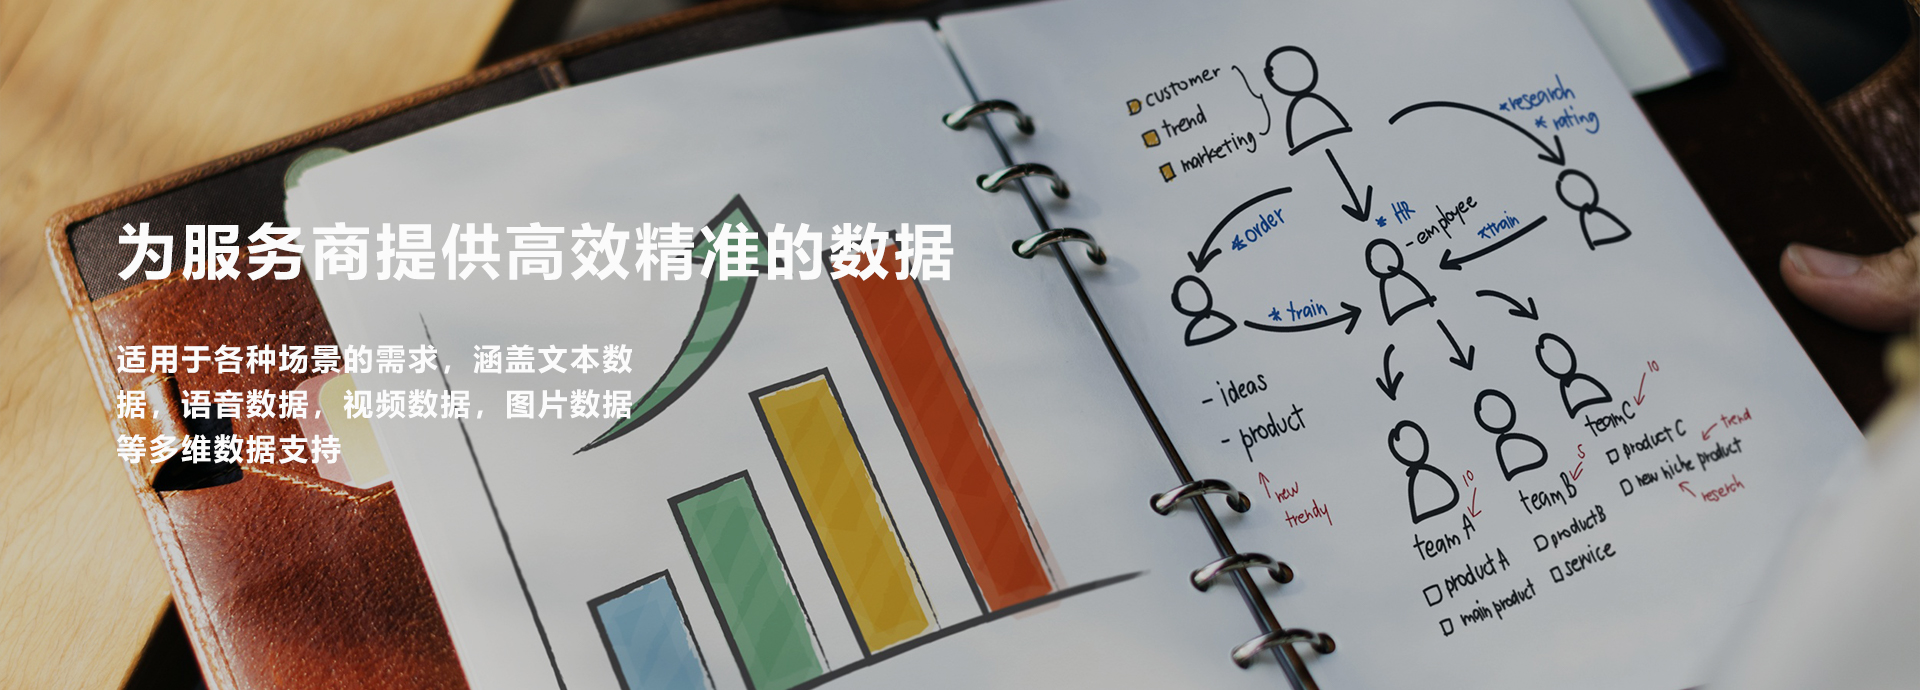 为服务商提供高效精准的数据
适用于各种场景的需求，涵盖文本数
据，语音数据，视频数据，图片数据
等多维数据支持
customer
trend
marketing
*research
* rating
*order
* HR
- employee
*train
* train
- ideas
- product
new
trendy
team A
10
product A
main product
team B
5
product B
service
team C
10
product C
trend
new niche product
reserch